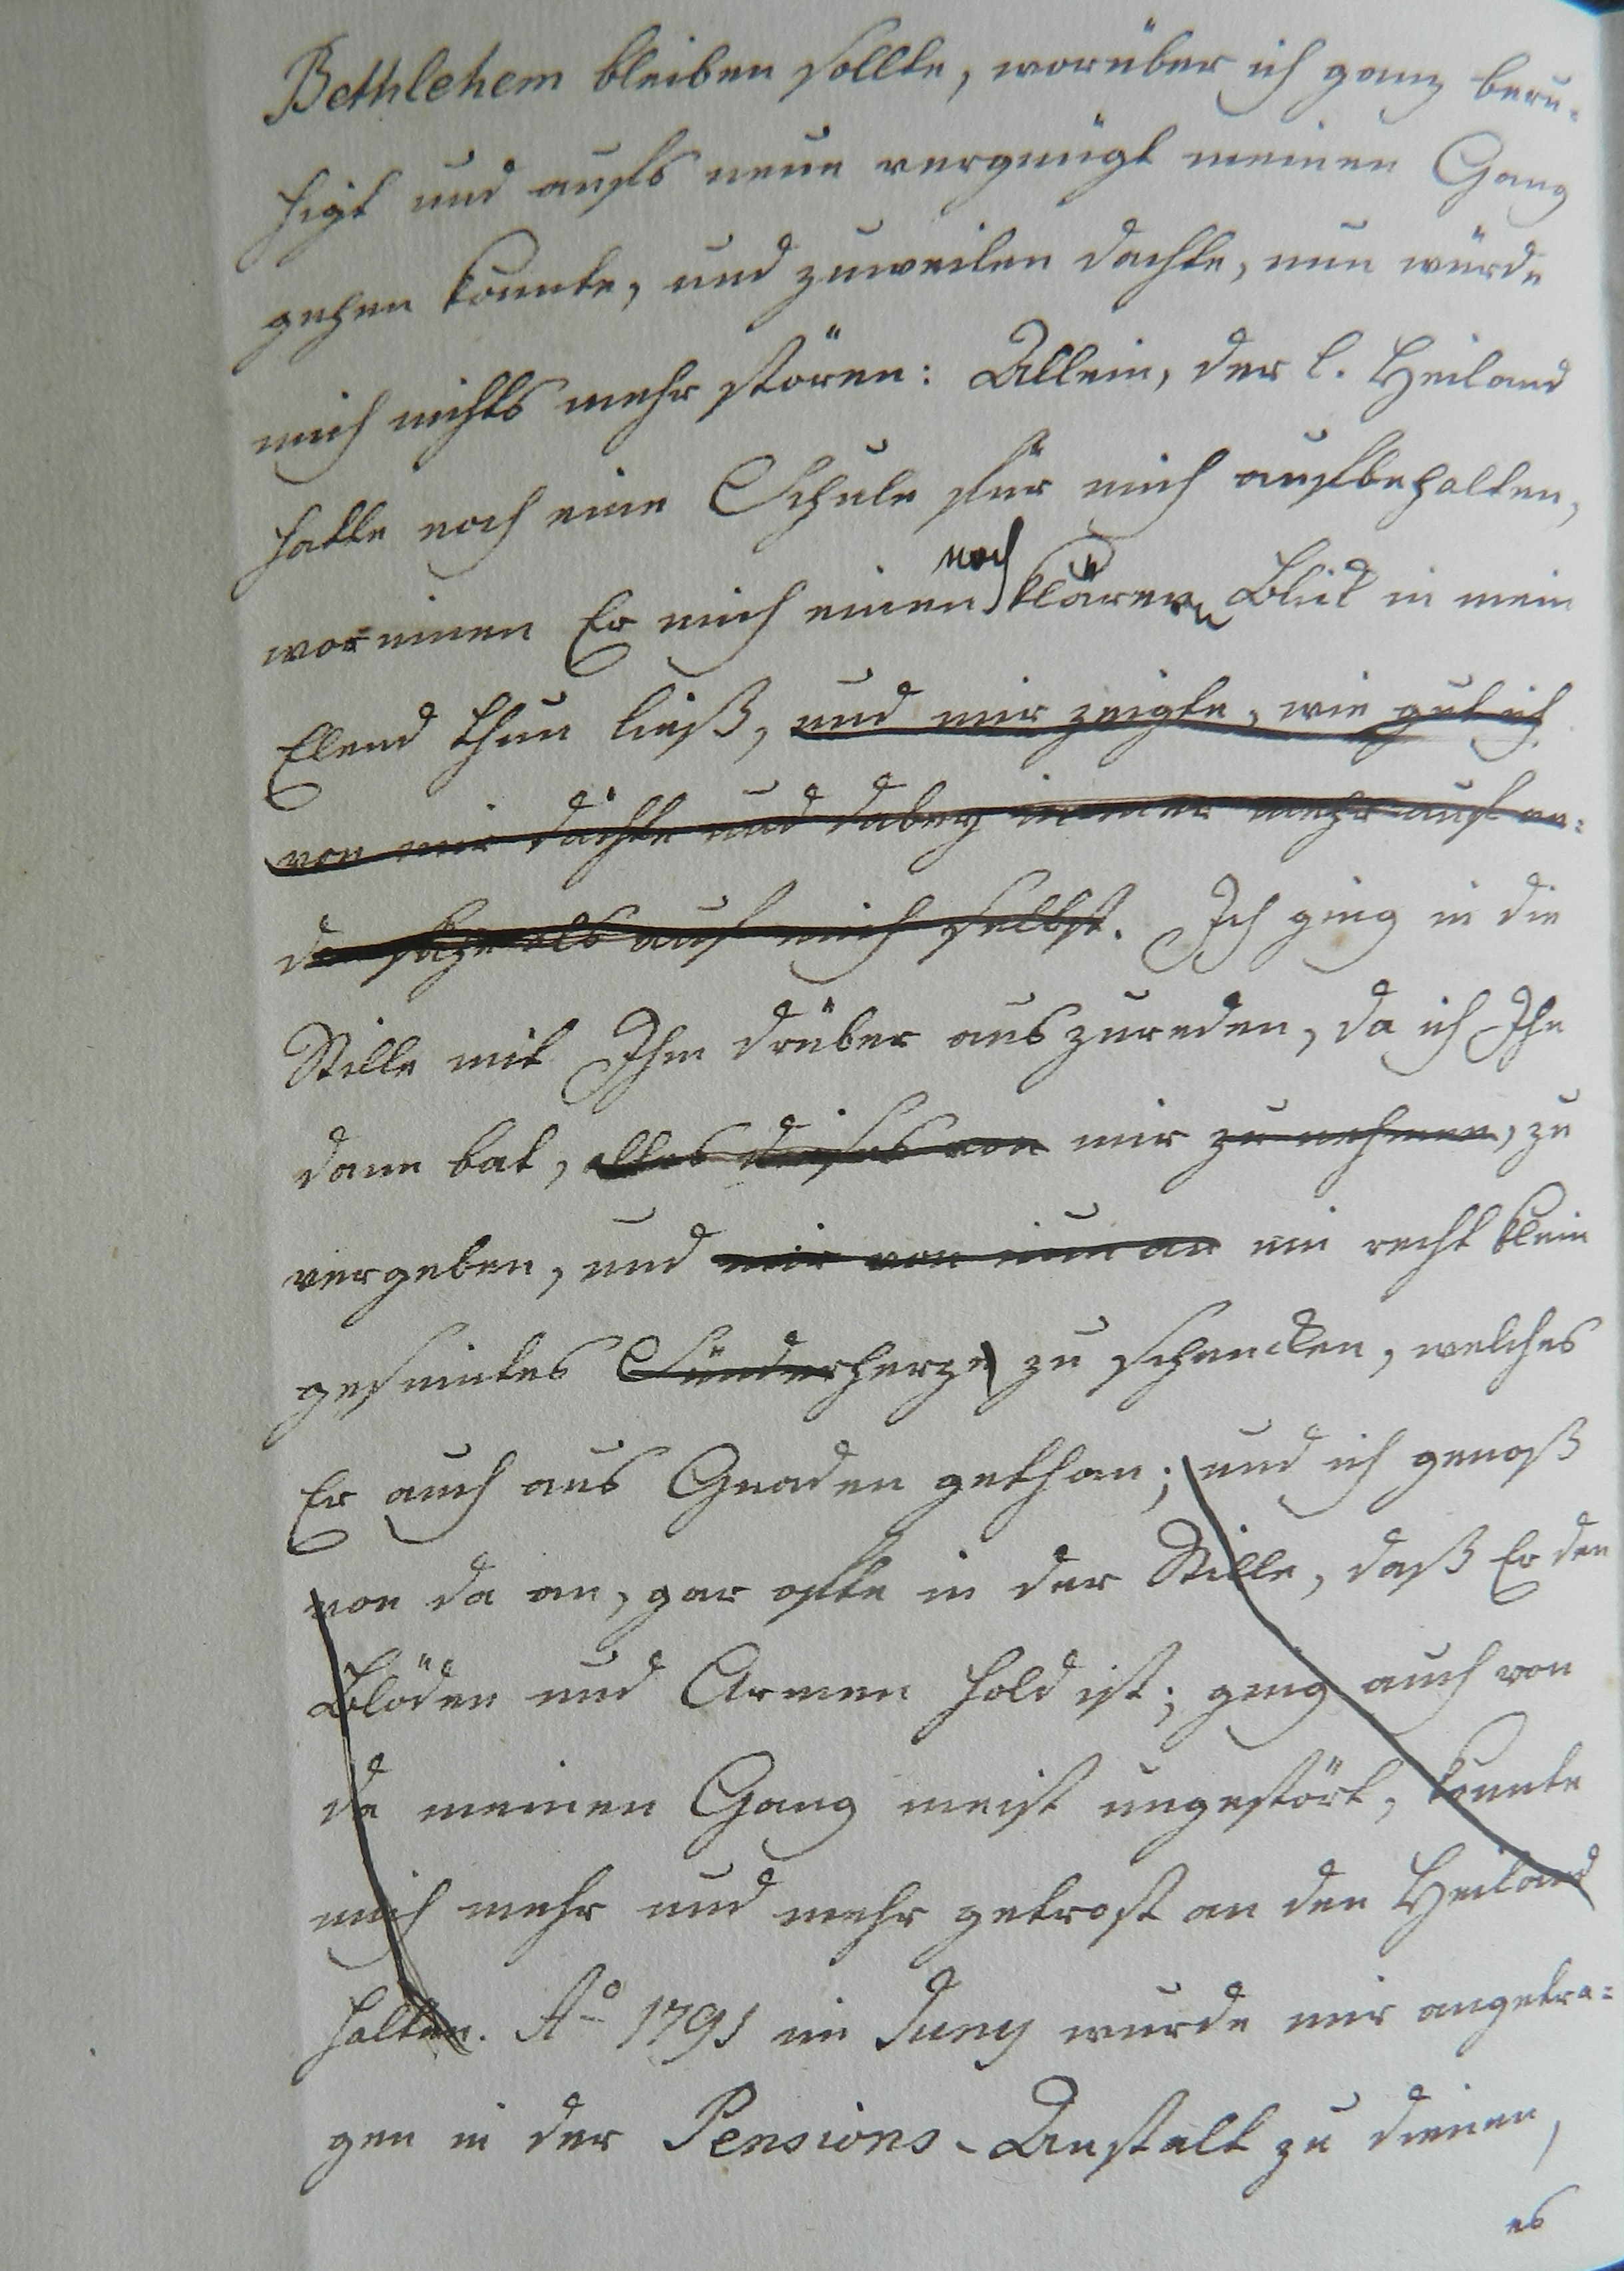 Bethlehem bleiben sollte, worüber ich ganz beru-
higt und aufs neue vergnügt meinen Gang
gehen konnte, und zuweilen dachte, nun würde
mich nichts mehr stören: Allein, der l. Heiland
hatte noch eine Schule für mich aufbehalten,
worinnen Er mich einen noch klären Blick in mein
Elend thun ließ, und mir zeigte, wie gut ich
von mir dächte und dabey immer mehr auf an-
de sähe als auf mich selbst. Ich ging in die
Stille mit Ihm drüber auszureden, da ich Ihn
dann bat, alles dieses von mir zu nehmen, zu
vergeben, und mir von nun an ein recht klein
gesinntes Sünderherze zu schencken, welches
Er auch aus Gnaden gethan; und ich genoß
von da an, gar ofte in der Stille, daß Er den
Blöden und Armen hold ist; ging auch von
da meinen Gang meist ungestört, konnte
mich mehr und mehr getrost an den Heiland
halten. Ao 1791 im Juny wurde mir angetra-
gen in der Pensions-Anstalt zu dienen,
es